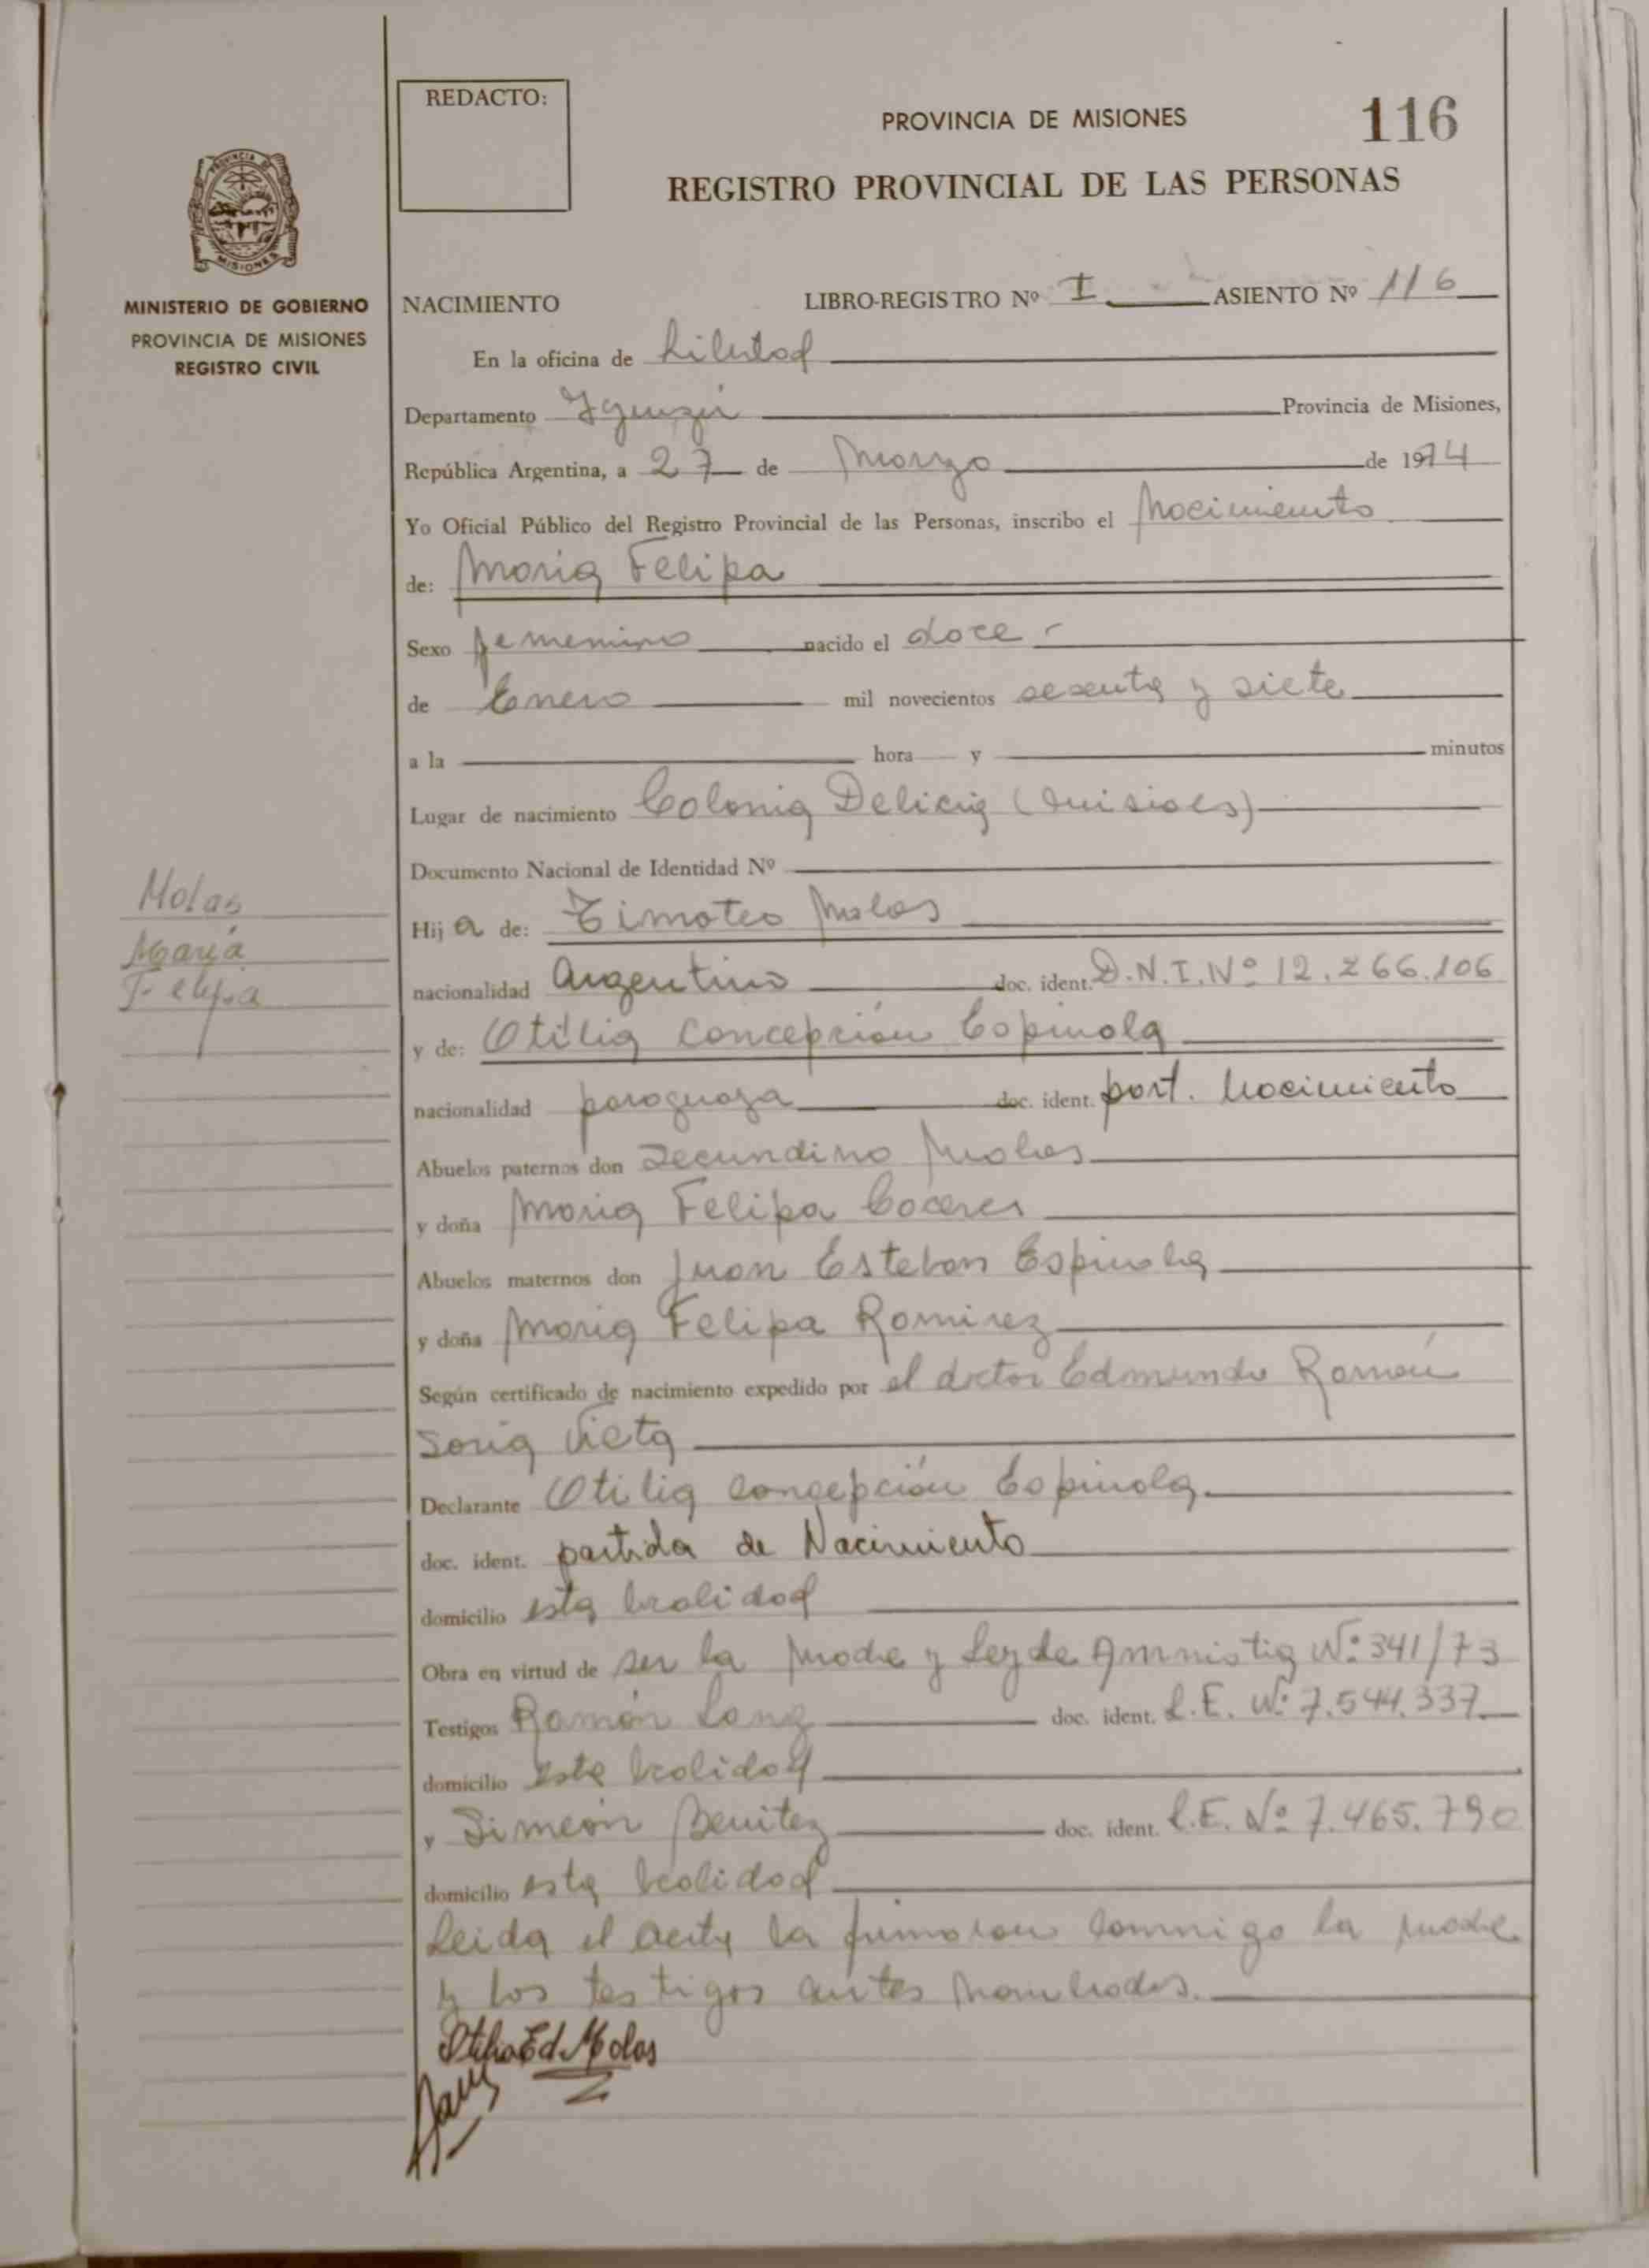 REDACTO:
PROVINCIA DE MISIONES
116
REGISTRO PROVINCIAL DE LAS PERSONAS
PROVINCIA DE
MISIONES
MINISTERIO DE GOBIERNO
PROVINCIA DE MISIONES
REGISTRO CIVIL
NACIMIENTO LIBRO-REGISTRO Nº I ASIENTO Nº 116
En la oficina de Libertad
Departamento Iguazú Provincia de Misiones,
República Argentina, a 27 de Marzo de 1974
Yo Oficial Público del Registro Provincial de las Personas, inscribo el Nacimiento
de: Maria Felipa
Sexo femenino nacido el doce
de Enero mil novecientos sesenta y siete
a la hora y minutos
Lugar de nacimiento Colonia Delicia (Misiones)
Documento Nacional de Identidad Nº
Molas
María
Felipa
Hij a de: Timoteo Molas
nacionalidad Argentino doc. ident. D.N.I. Nº 12.266.106
y de: Otilia Concepción Espinola
nacionalidad paraguaya doc. ident. part. Nacimiento
Abuelos paternos don Secundino Molas
y doña Maria Felipa Caceres
Abuelos maternos don Juan Esteban Espinola
y doña Maria Felipa Romirez
Según certificado de nacimiento expedido por el doctor Edmundo Ramón
Soria Vieta
Declarante Otilia Concepción Espinola
doc. ident. partida de Nacimiento
domicilio esta localidad
Obra en virtud de ser la madre y Ley de Amnistia Nº 341/73
Testigos Ramón Lang doc. ident. L.E. Nº 7.544.337
domicilio esta localidad
y Simeón Benitez doc. ident. L.E. Nº 7.465.790
domicilio esta localidad
Leida el acta la firmaron conmigo la madre
y los testigos antes nombrados.
Otilia Ed. Molas